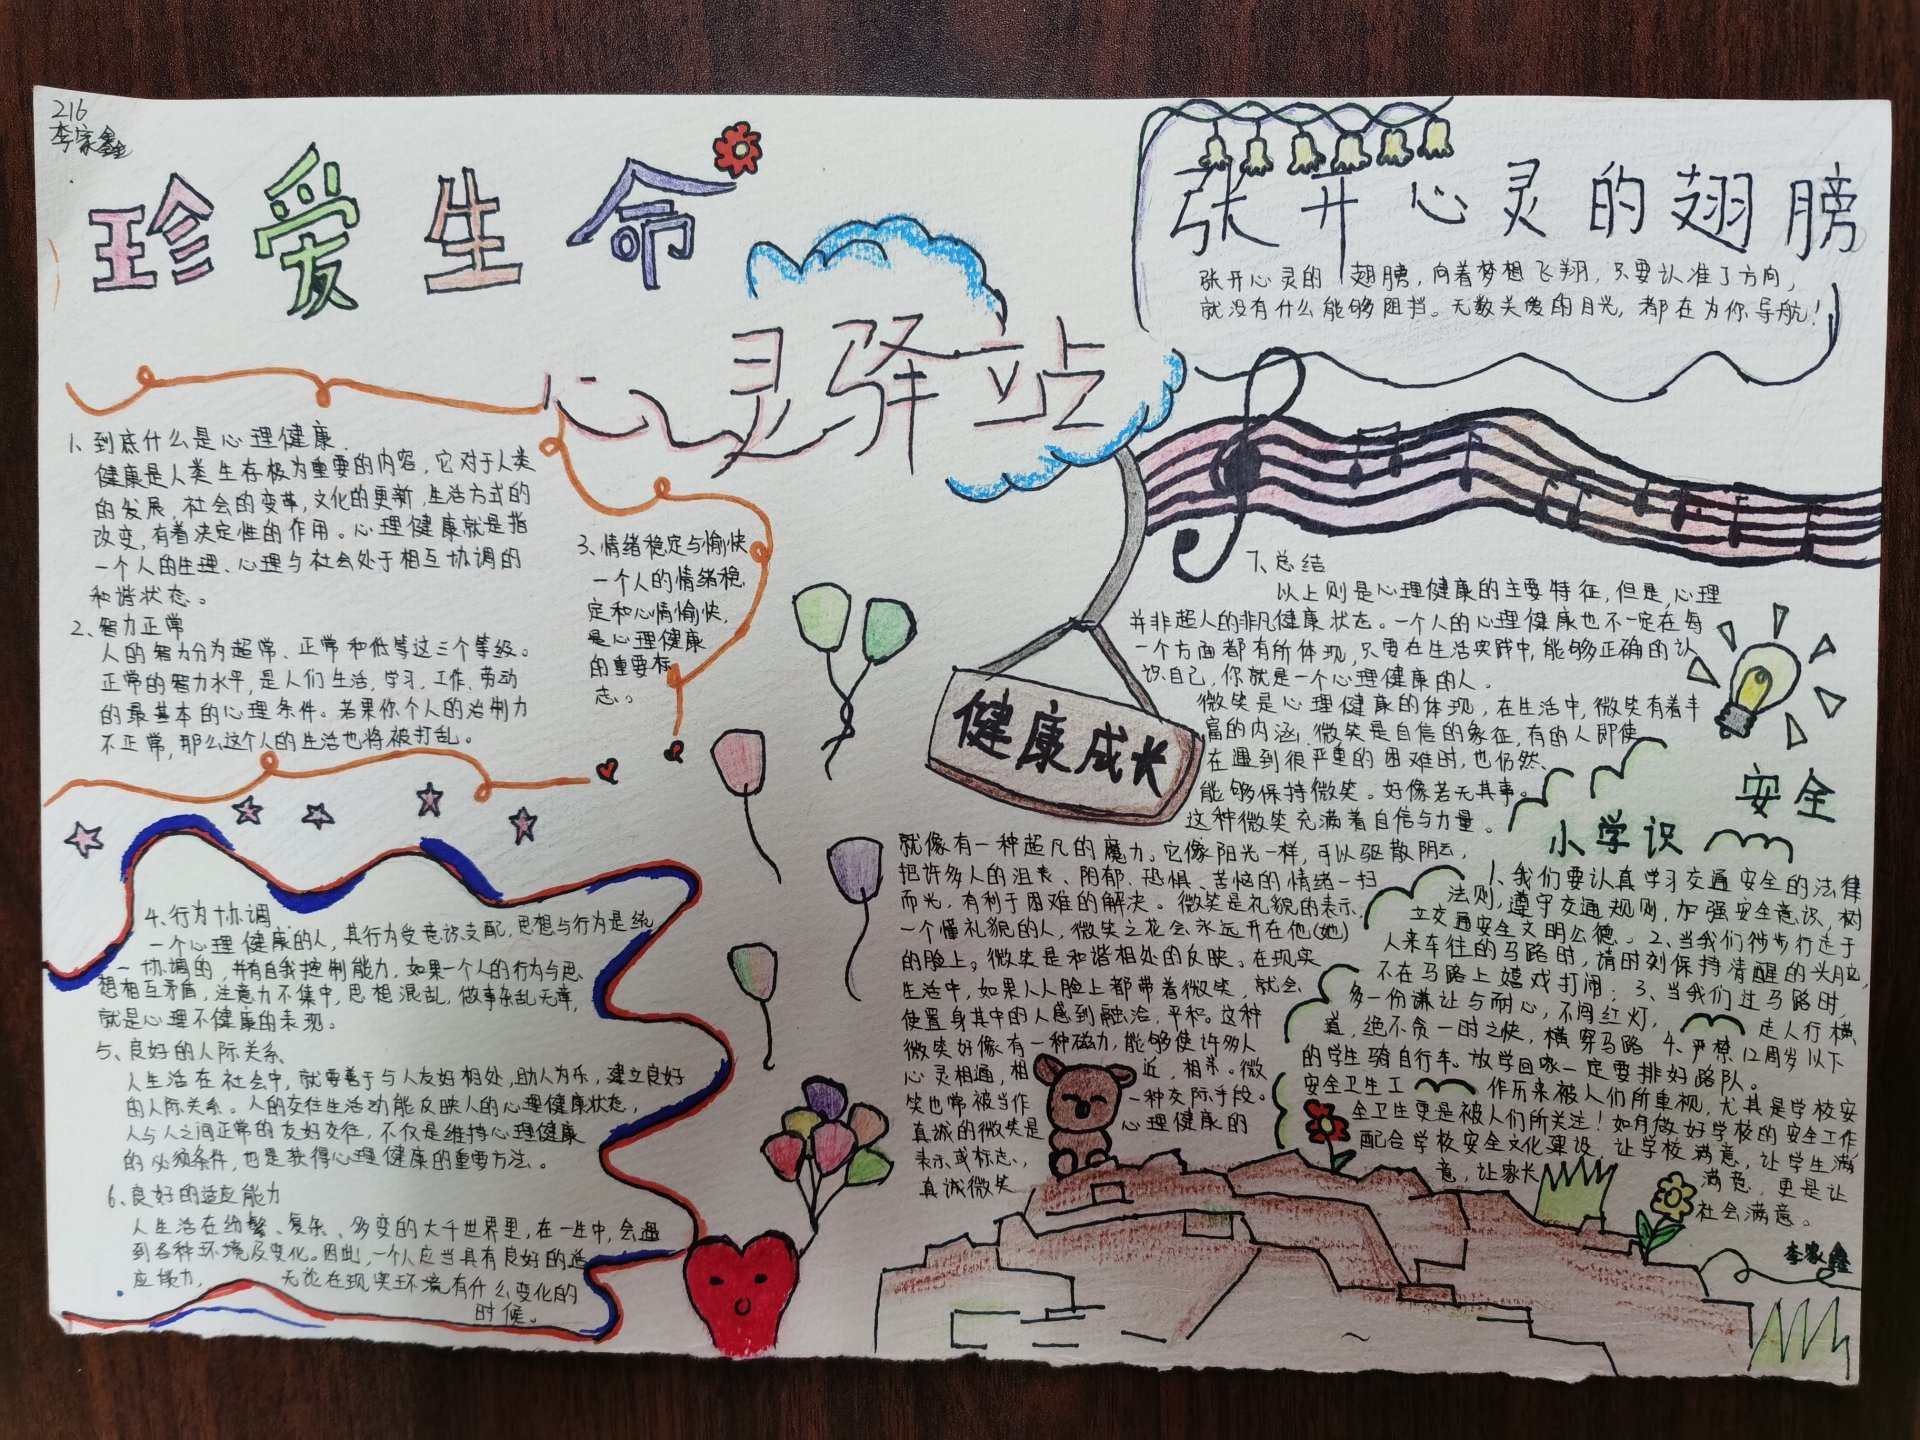 216
李家鑫
珍爱生命
心灵驿站
张开心灵的翅膀
张开心灵的 翅膀，向着梦想飞翔，只要认准了方向，
就没有什么能够阻挡。无数关爱的目光，都在为你导航！
1、到底什么是心理健康
健康是人类生存极为重要的内容，它对于人类
的发展，社会的变革，文化的更新，生活方式的
改变，有着决定性的作用。心理健康就是指
一个人的生理、心理与社会处于相互协调的
和谐状态。
2、智力正常
人的智力分为超常、正常和低等这三个等级。
正常的智力水平，是人们生活，学习，工作、劳动
的最基本的心理条件。若果你个人的治制力
不正常，那么这个人的生活也将被打乱。
3、情绪稳定与愉快
一个人的情绪稳
定和心情愉快，
是心理健康
的重要标
志。
4、行为协调
一个心理健康的人，其行为受意识支配，思想与行为是统
一协调的，并有自我控制能力，如果一个人的行为与思
想相互矛盾，注意力不集中，思想混乱，做事杂乱无章，
就是心理不健康的表现。
5、良好的人际关系
人生活在社会中，就要善于与人友好相处，助人为乐，建立良好
的人际关系。人的交往生活动能反映人的心理健康状态，
人与人之间正常的友好交往，不仅是维持心理健康
的必须条件，也是获得心理健康的重要方法。
6、良好的适应能力
人生活在纷繁、复杂、多变的大千世界里，在一生中，会遇
到各种环境及变化。因此，一个人应当具有良好的适
应能力， 无论在现实环境有什么变化的
时候。
健康成长
7、总结
以上则是心理健康的主要特征，但是，心理
并非超人的非凡健康状态。一个人的心理健康也不一定在每
一个方面都有所体现，只要在生活实践中，能够正确的认
识自己，你就是一个心理健康的人。
微笑是心理健康的体现，在生活中，微笑有着丰
富的内涵，微笑是自信的象征，有的人即使
在遇到很严重的困难时，也仍然、
能够保持微笑。好像若无其事。
这种微笑充满着自信与力量。
就像有一种超凡的魔力。它像阳光一样，可以驱散阴云，
把许多人的沮丧、阴郁、恐惧、苦恼的情绪一扫
而光，有利于困难的解决。微笑是礼貌的表示，
一个懂礼貌的人，微笑之花会永远开在他(她)
的脸上。微笑是和谐相处的反映。在现实
生活中，如果人人脸上都带着微笑，就会
使置身其中的人感到融洽，平和。这种
微笑好像有一种磁力，能够使许多人
心灵相通，相 近，相亲。微
笑也常被当作 一种交际手段。
真诚的微笑是 心理健康的
表示或标志，
真诚微笑
安全
小学识
1、我们要认真学习交通安全的法律
法则，遵守交通规则，加强安全意识，树
立交通安全文明公德。2、当我们徒步行走于
人来车往的马路时，请时刻保持清醒的头脑，
不在马路上嬉戏打闹；3、当我们过马路时，
多一份谦让与耐心，不闯红灯， 走人行横
道，绝不贪一时之快，横穿马路 4、严禁12周岁以下
的学生骑自行车。放学回家一定要排好路队。
安全卫生工 作历来被人们所重视，尤其是学校安
全卫生更是被人们所关注！如何做好学校的安全工作，
配合学校安全文化建设，让学校满意，让学生满
意，让家长 满意，更是让
社会满意。
李家鑫